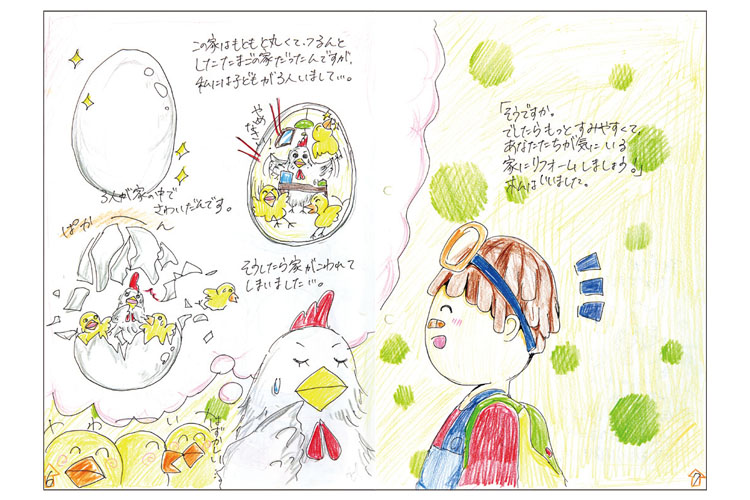 この家はもともと丸くて、つるんと
したたまごの家だったんですが、
私には子どもが3人いまして…。
やめなさい
3人が家の中で
さわいだんです。
ぱかーん
そうしたら家がこわれて
しまいました…。
はずかしい…
「そうですか。
でしたらもっとすみやすくて、
あなたたちが気にいる
家にリフォームしましょう!」
ポムはいいました。
7